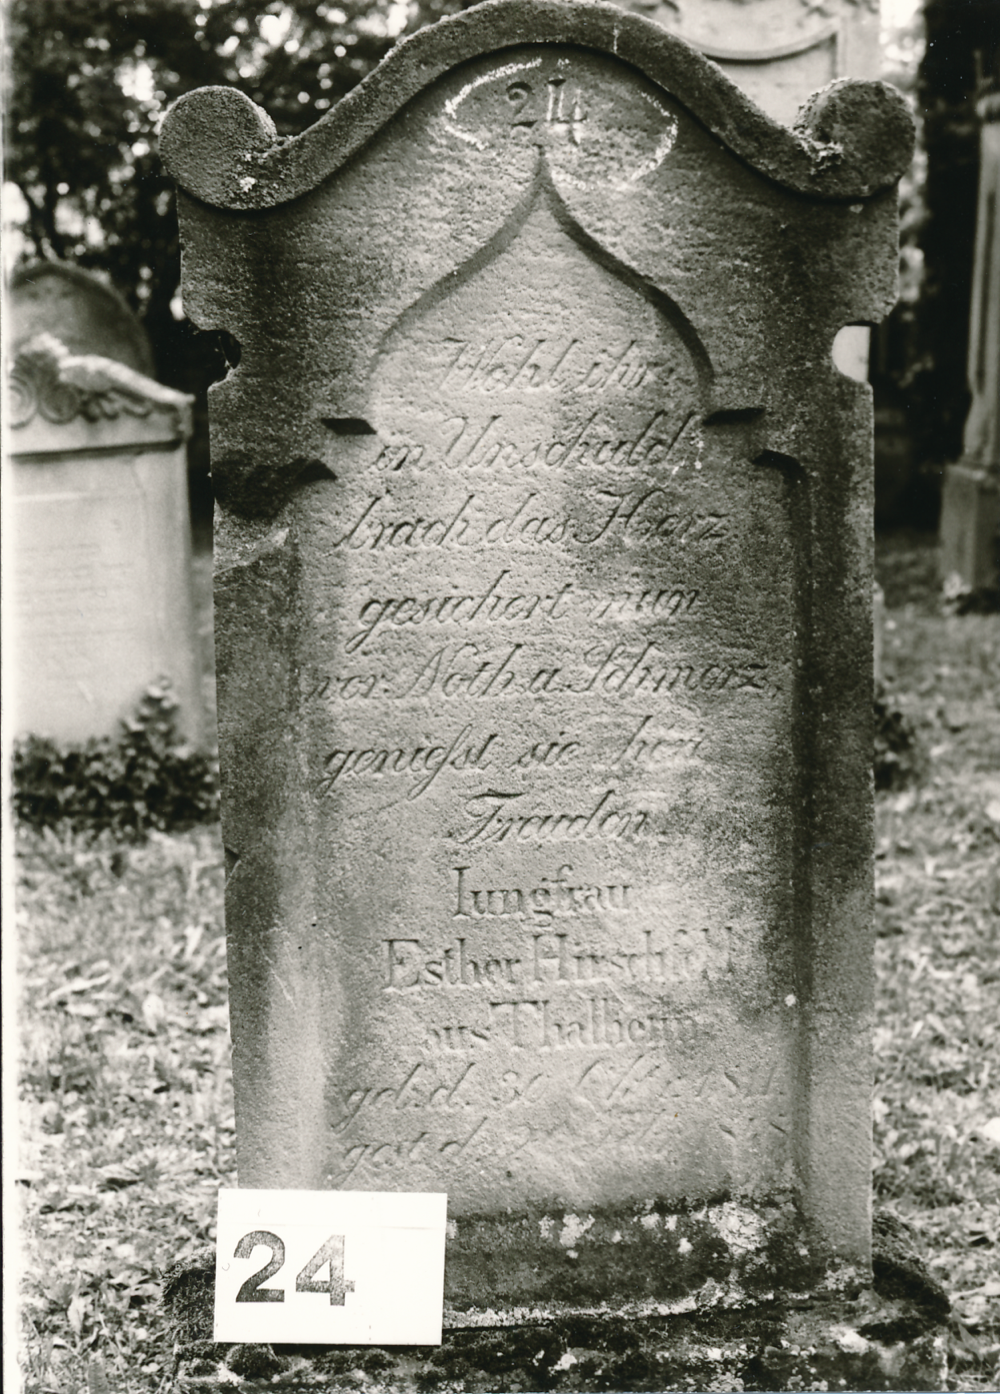 24
Wohl ihr
in Unschuld
brach das Herz
gesichert nun
vor Noth u. Schmerz,
genießt sie
Freuden
Iungfrau
Esther Hirschfeld
aus Thalheim
geb. d. 30
gest. d.
24